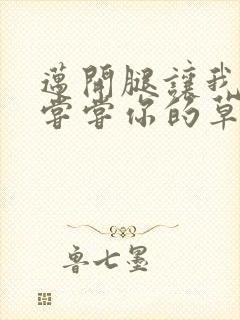 邁開腿讓我
嘗嘗你的草
魯七墨